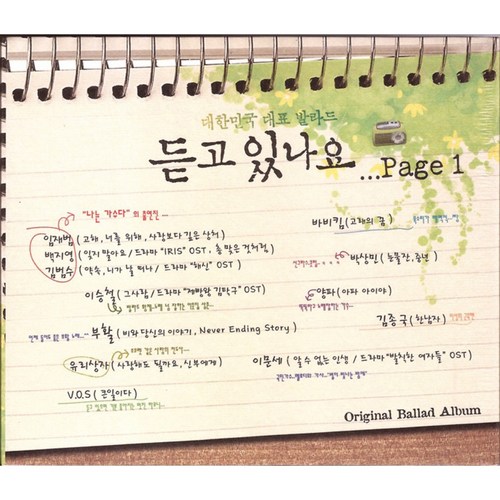 대한민국 대표 발라드
듣고 있나요
...Page 1
"나는 가수다" 의 출연진
임재범 (고해, 너를 위해, 사랑보다 깊은 상처)
백지영 (잊지 말아요 / 드라마 "IRIS" OST, 총 맞은 것처럼)
김범수 (약속, 니가 날 떠나 / 드라마 "해신" OST)
이승철 (그 사람 / 드라마 "제빵왕 김탁구" OST)
부활 (비와 당신의 이야기, Never Ending Story)
유리상자 (사랑해도 될까요, 신부에게)
V.O.S (큰일이다)
바비킴 (고래의 꿈)
박상민 (눈물잔, 중년)
양파 (아파 아이야)
김종국 (한 남자)
이문세 (알 수 없는 인생 / 드라마 "발칙한 여자들" OST)
Original Ballad Album